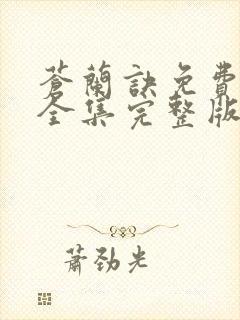 蒼蘭訣免費
全集完整版
蕭勁光